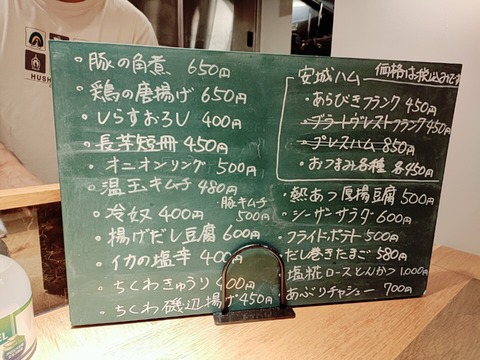 HUSH
・豚の角煮 650円
・鶏の唐揚げ 650円
・しらすおろし 400円
・長芋短冊 450円
・オニオンリング 500円
・温玉キムチ 480円
豚キムチ 500円
・冷奴 400円
・揚げだし豆腐 600円
・イカの塩辛 400円
・ちくわきゅうり 400円
・ちくわ磯辺揚げ 450円
価格は税込みです
安城ハム
・あらびきフランク 450円
・ブラートヴルストフランク 450円
・プレスハム 850円
・おつまみ各種 各450円
・熱あつ厚揚豆腐 500円
・シーザーサラダ 600円
・フライドポテト 500円
・だし巻きたまご 580円
・塩糀ロースとんかつ 1,000円
・あぶりチャシュー 700円